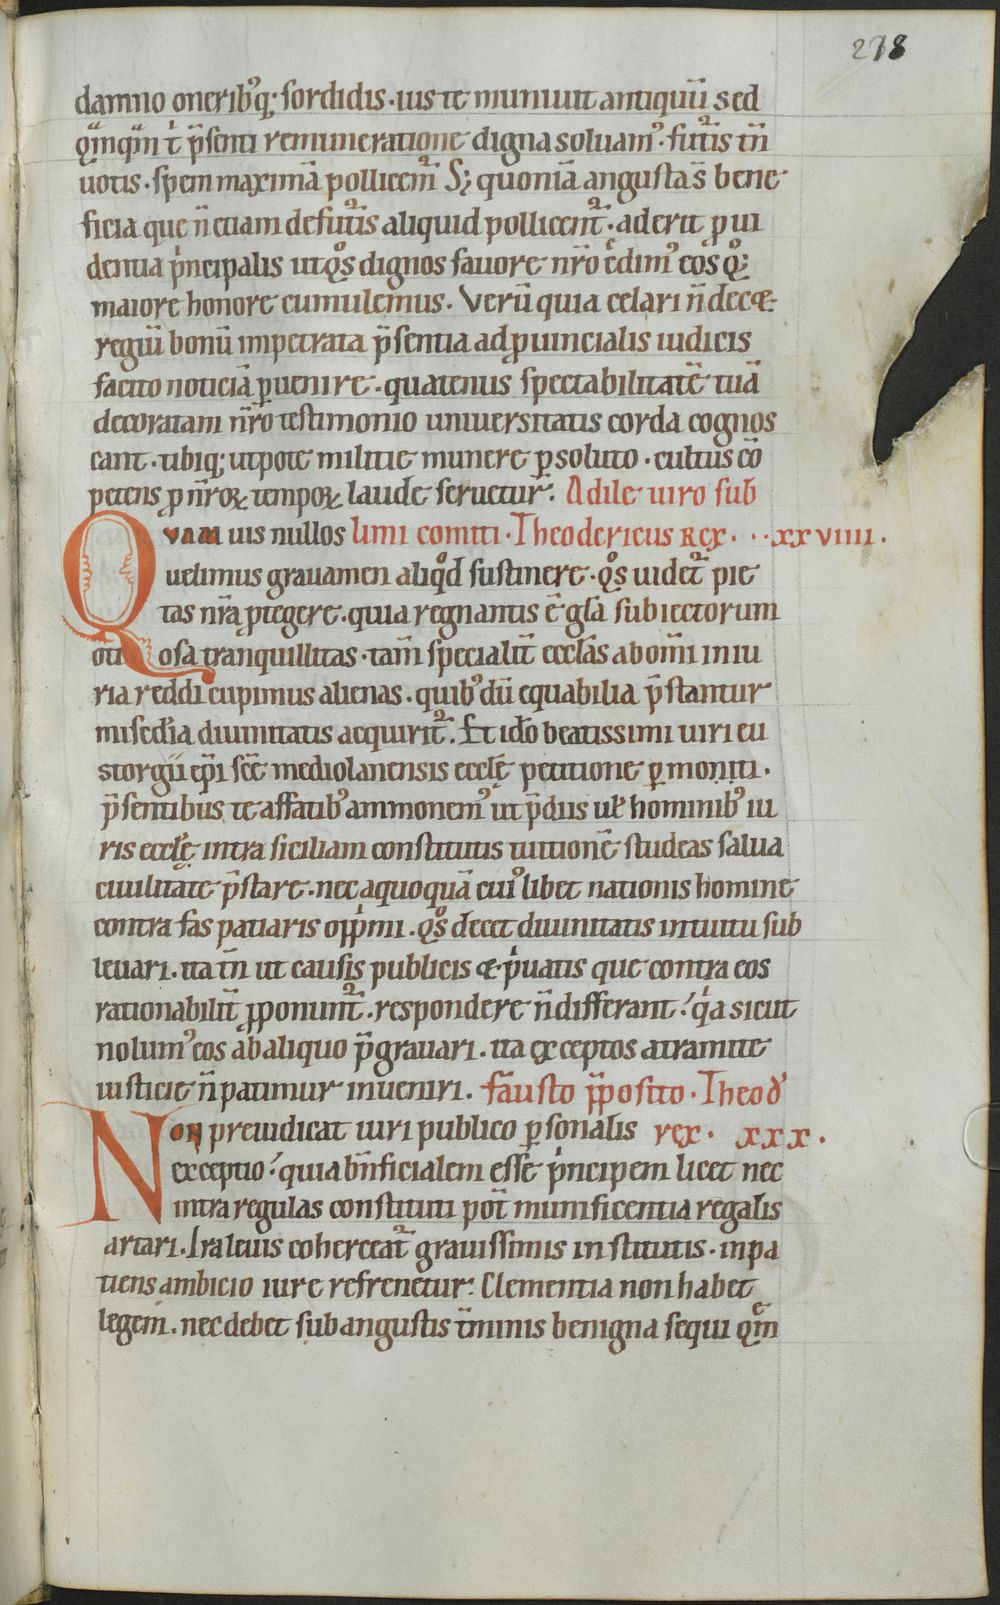 278
damno oneribꝰq; sordidis · ius te muniuit antiquū sed
qͣmqͣm t̾ p̄senti remuneratione digna soluamꝰ · futͬis tn̄
uotis · spem maximā pollicem̃ S; quoniā angusta s̄ bene
ficia que n̄ etiam de futͬis aliquid pollicent᷑ · aderit ꝓui
dentia pͥncipalis ut qͦs dignos fauore nr̄o cͤdimꝰ eos qͦq;
maiore honore cumulemus · Verū quia celari n̄ decæ
regiū bonū impetrata p̄sentia ad ꝓuincialis iudicis
facito noticiā ꝑuenire · quatenus spectabilitatē tuā
decoratam nr̄o testimonio uniuersitatis corda cognos
cant · tibiq; utpote militie munere ꝑsoluto · cultus cō
petens ꝓ nr̄oꝝ tempoꝝ laude seruetur · Adile uiro sub
Quam uis nullos limi comiti · Theodericus Rex · · · xxviiii ·
uelimus grauamen aliqͦd sustinere · qͦs uidet᷑ pie
tas nr̄a ꝓtegere · quia regnantis ē gl̄a subiectorum
otiosa tranquillitas · tam̄ specialit̄ eccl̄as ab om̄i iniu
ria reddi cupimus alienas · quibꝰ dū equabilia p̄stantur
misedīa diuinitatis acquirit᷑ · Et id̄o beatissimi uiri eu
storgii ep̄i sc̄e mediolanensis eccl̄ę petitione ꝑmoniti ·
p̄sentibus te affatibꝰ ammonemꝰ ut p̄diis ul̄ hominibꝰ iu
ris eccl̄ę intra siciliam constitutis tuitionē studeas salua
ciuilitate p̄stare · nec a quoquā cuiꝰlibet nationis homine
contra fas patiaris oppͥmi · qͦs decet diuinitatis intuitu sub
leuari · ita tn̄ ut causis publicis & pͥuatis que contra eos
rationabilit̄ ꝓponunt᷑ · respondere n̄ differant · qͥa sicut
nolumꝰ eos ab aliquo p̄grauari · ita exceptos a tramite
iusticie n̄ patimur inueniri · Fausto p̄posito · Theod̾
Non preiudicat iuri publico ꝑsonalis rex · xxx ·
exceptio · quia bn̄ficialem esse pͥncipem licet nec
intra regulas constituti pōt munificentia regalis
artari · Ira leuis coherceat᷑ grauissimis institutis · inpa
tiens ambicio iure refrenetur · Clementia non habet
legem · nec debet sub angustis t̄minis benigna sequi qͣm